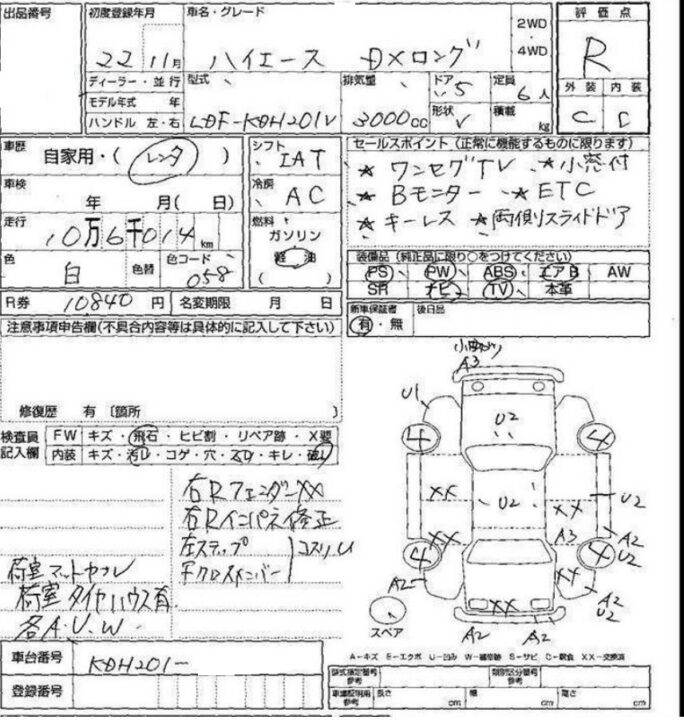 出品番号
初度登録年月
22年 11月
車名・グレード
ハイエース DXロング
2WD
・
4WD
評価点
R
外装 内装
C D
ディーラー・並行
モデル年式 年
ハンドル 左・右
型式
LDF-KDH201V
排気量
3000cc
ドア
5
形状
V
定員
6人
積載
kg
車歴
自家用・(レンタ)
車検
年 月(日)
走行
10万6千014km
色
白
色替
色コード
058
シフト
IAT
冷房
AC
燃料
ガソリン
軽油
( )
セールスポイント(正常に機能するものに限ります)
★ ワンセグTV ★小窓付
★ Bモニター ★ETC
★ キーレス ★両側スライドドア
装備品(純正品に限り○をつけてください)
PS PW ABS エアB AW
SR ナビ TV 本革
R券 10840円
名変期限 月 日
新車保証書
有・無
後日品
注意事項申告欄(不具合内容等は具体的に記入して下さい)
修復歴 有 〔箇所 〕
検査員
記入欄
FW キズ・飛石・ヒビ割・リペア跡・X要
内装 キズ・汚れ・コゲ・穴・スレ・キレ・破れ
右RフェンダーXX
右Rインパネ修正
左ステップ
Fクロスメンバー
コスリU
荷室マットヤブレ
荷室タイヤハウス有
各A.U.W
A3
U1
U2
4
4
XX
U2
XX
U2
XX
A3
A2
U2
4
4
A2
XX
A2
U2
XX
A2
A2
スペア
A-キズ E-エクボ U-凹み W-補修跡 S-サビ C-腐食 XX-交換済
車台番号
KDH201-
登録番号
型式指定番号
参考
類別区分番号
参考
車庫証明用
参考
長さ cm
幅 cm
高さ cm